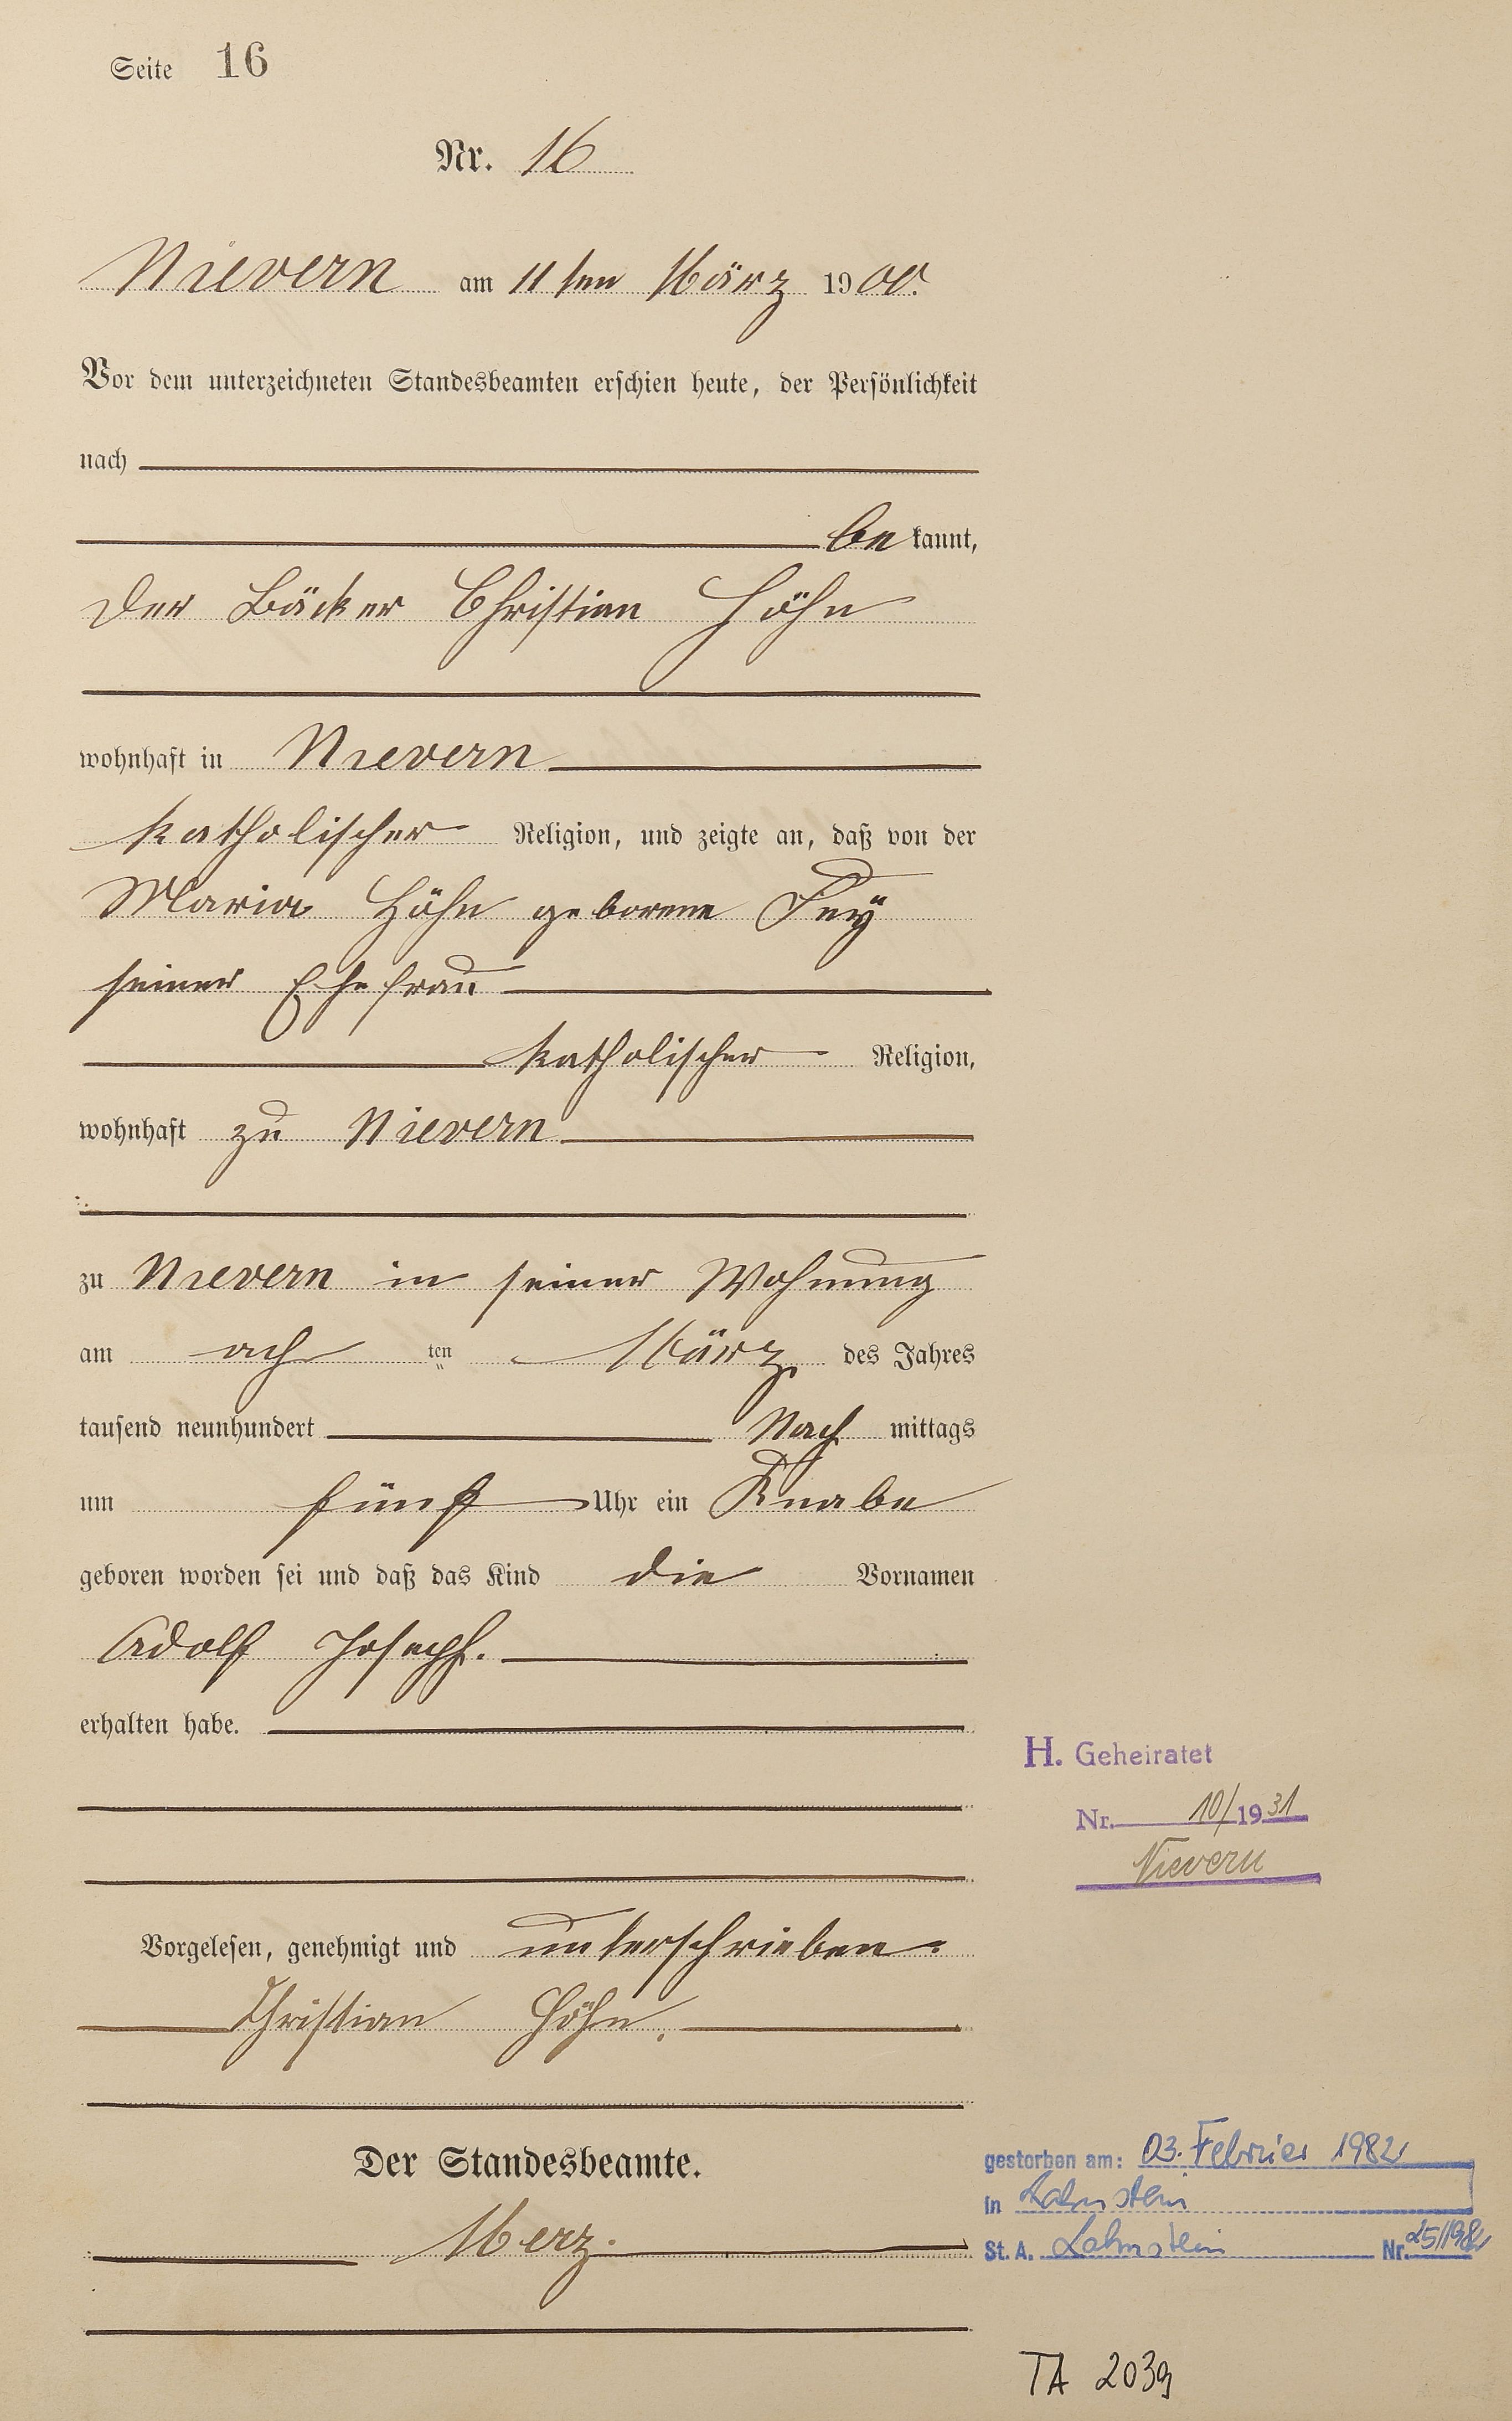 Seite 16
Nr. 16
Nievern am 11ten März 1900.
Vor dem unterzeichneten Standesbeamten erschien heute, der Persönlichkeit
nach
be kannt,
der Bäcker Christian Höhn
wohnhaft in Nievern
katholischer Religion, und zeigte an, daß von der
Maria Höhn geborene Fey
seiner Ehefrau
katholischer Religion,
wohnhaft zu Nievern
zu Nievern in seiner Wohnung
am ach ten März des Jahres
tausend neunhundert Nach mittags
um fünf Uhr ein Knabe
geboren worden sei und daß das Kind die Vornamen
Adolf Joseph.
erhalten habe.
H. Geheiratet
Nr. 10/1931
Nievern
Vorgelesen, genehmigt und unterschrieben.
Christian Höhn.
Der Standesbeamte.
Merz.
gestorben am: 03. Februar 1982
in Lahnstein
St. A. Lahnstein Nr. 25/1982
TA 2039